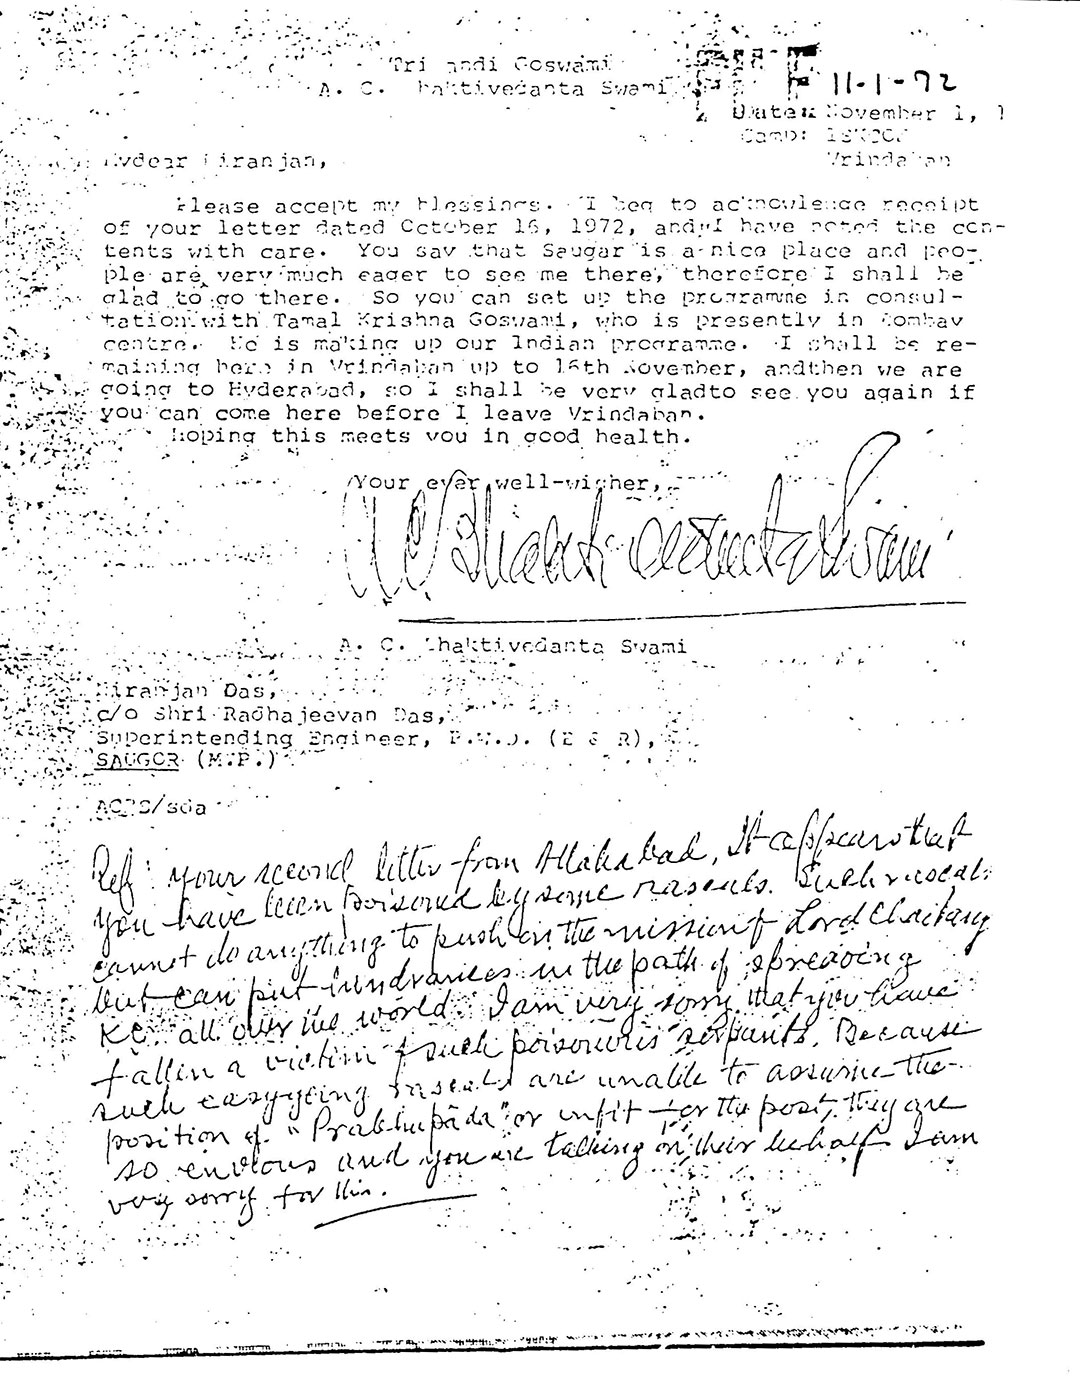 Tri andi Goswami
A. C. haktivedanta Swami
11-1-72
Date: November 1, 1
Camp: ISKCON
Vrindaban
Mydear Niranjan,
Please accept my blessings. I beg to acknowledge receipt
of your letter dated October 16, 1972, and I have noted the con-
tents with care. You say that Saugar is a nice place and peo-
ple are very much eager to see me there, therefore I shall be
glad to go there. So you can set up the programme in consul-
tation with Tamal Krishna Goswami, who is presently in Bombay
centre. He is making up our Indian programme. I shall be re-
maining here in Vrindaban up to 16th November, andthen we are
going to Hyderabad, so I shall be very gladto see you again if
you can come here before I leave Vrindaban.
Hoping this meets you in good health.
Your ever well-wisher,
A. C. Bhaktivedanta Swami
A. C. Bhaktivedanta Swami
Niranjan Das,
c/o Shri Radhajeevan Das,
Superintending Engineer, P.W.D. (B & R),
SAUGOR (M.P.)
ACBS/sda
Ref: your second letter from Allahabad, It appears that
you have been poisoned by some rascals. Such rascals
cannot do anything to push on the mission of Lord Chaitanya
but can put hindrances in the path of spreading
KC all over the world. I am very sorry that you have
fallen a victim of such poisonous serpants. Because
such easygoing rascals are unable to assume the
position of "Prabhupāda" or unfit for the post, they are
so envious and you are talking on their behalf I am
very sorry for this.